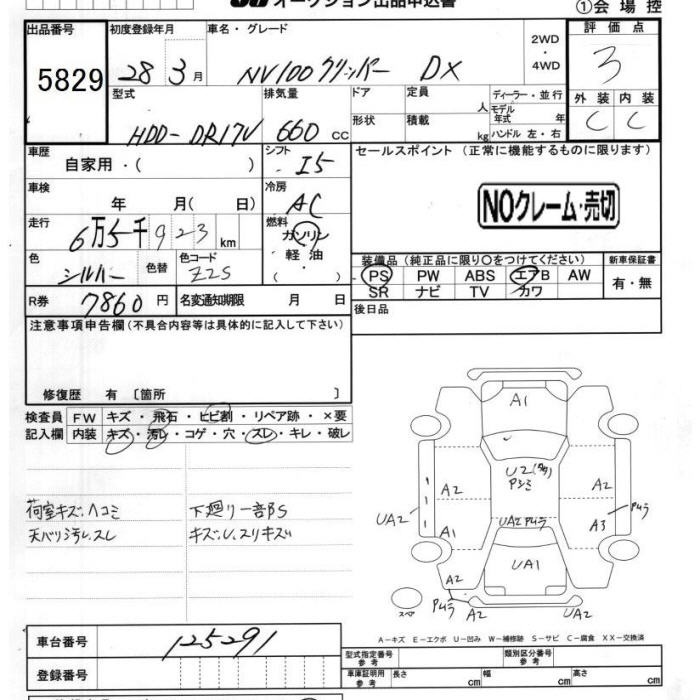 オークション出品申込書
①会場控
出品番号 初度登録年月 車名・グレード 2WD ・ 4WD 評価点
5829 28 3月 NV100クリッパー DX 3
型式 排気量 ドア 定員 人 ディーラー・並行 外装 内装
モデル年式 年
HDD-DR17V 660 CC 形状 積載 kg ハンドル 左・右 C C
車歴 シフト セールスポイント (正常に機能するものに限ります)
自家用・( ) I5
車検 冷房
年 月( 日) AC NOクレーム・売切
走行 燃料
6万5千923 km ガソリン
軽油
( )
装備品 (純正品に限り○をつけてください) 新車保証書
色 色替 色コード PS PW ABS エアB AW 有・無
シルバー Z2S SR ナビ TV カワ
R券 7860円 名変通知期限 月 日 後日品
注意事項申告欄(不具合内容等は具体的に記入して下さい)
修復歴 有 〔箇所 〕
検査員 FW キズ・飛石・ヒビ割・リペア跡・×要
記入欄 内装 キズ・汚レ・コゲ・穴・スレ・キレ・破レ
荷室キズ.ヘコミ 下廻り一部S
天バリ汚レ.スレ キズ.U.スリキズ
A1
U2
A2 A2
UA2
UA2
A1 A3
UA1
A2 A2
スペア A2 UA2
A-キズ E-エクボ U-凹み W-補修跡 S-サビ C-腐食 XX-交換済
車台番号 125291 型式指定番号 参考 類別区分番号 参考
登録番号 車庫証明用 参考 長さ cm 幅 cm 高さ cm